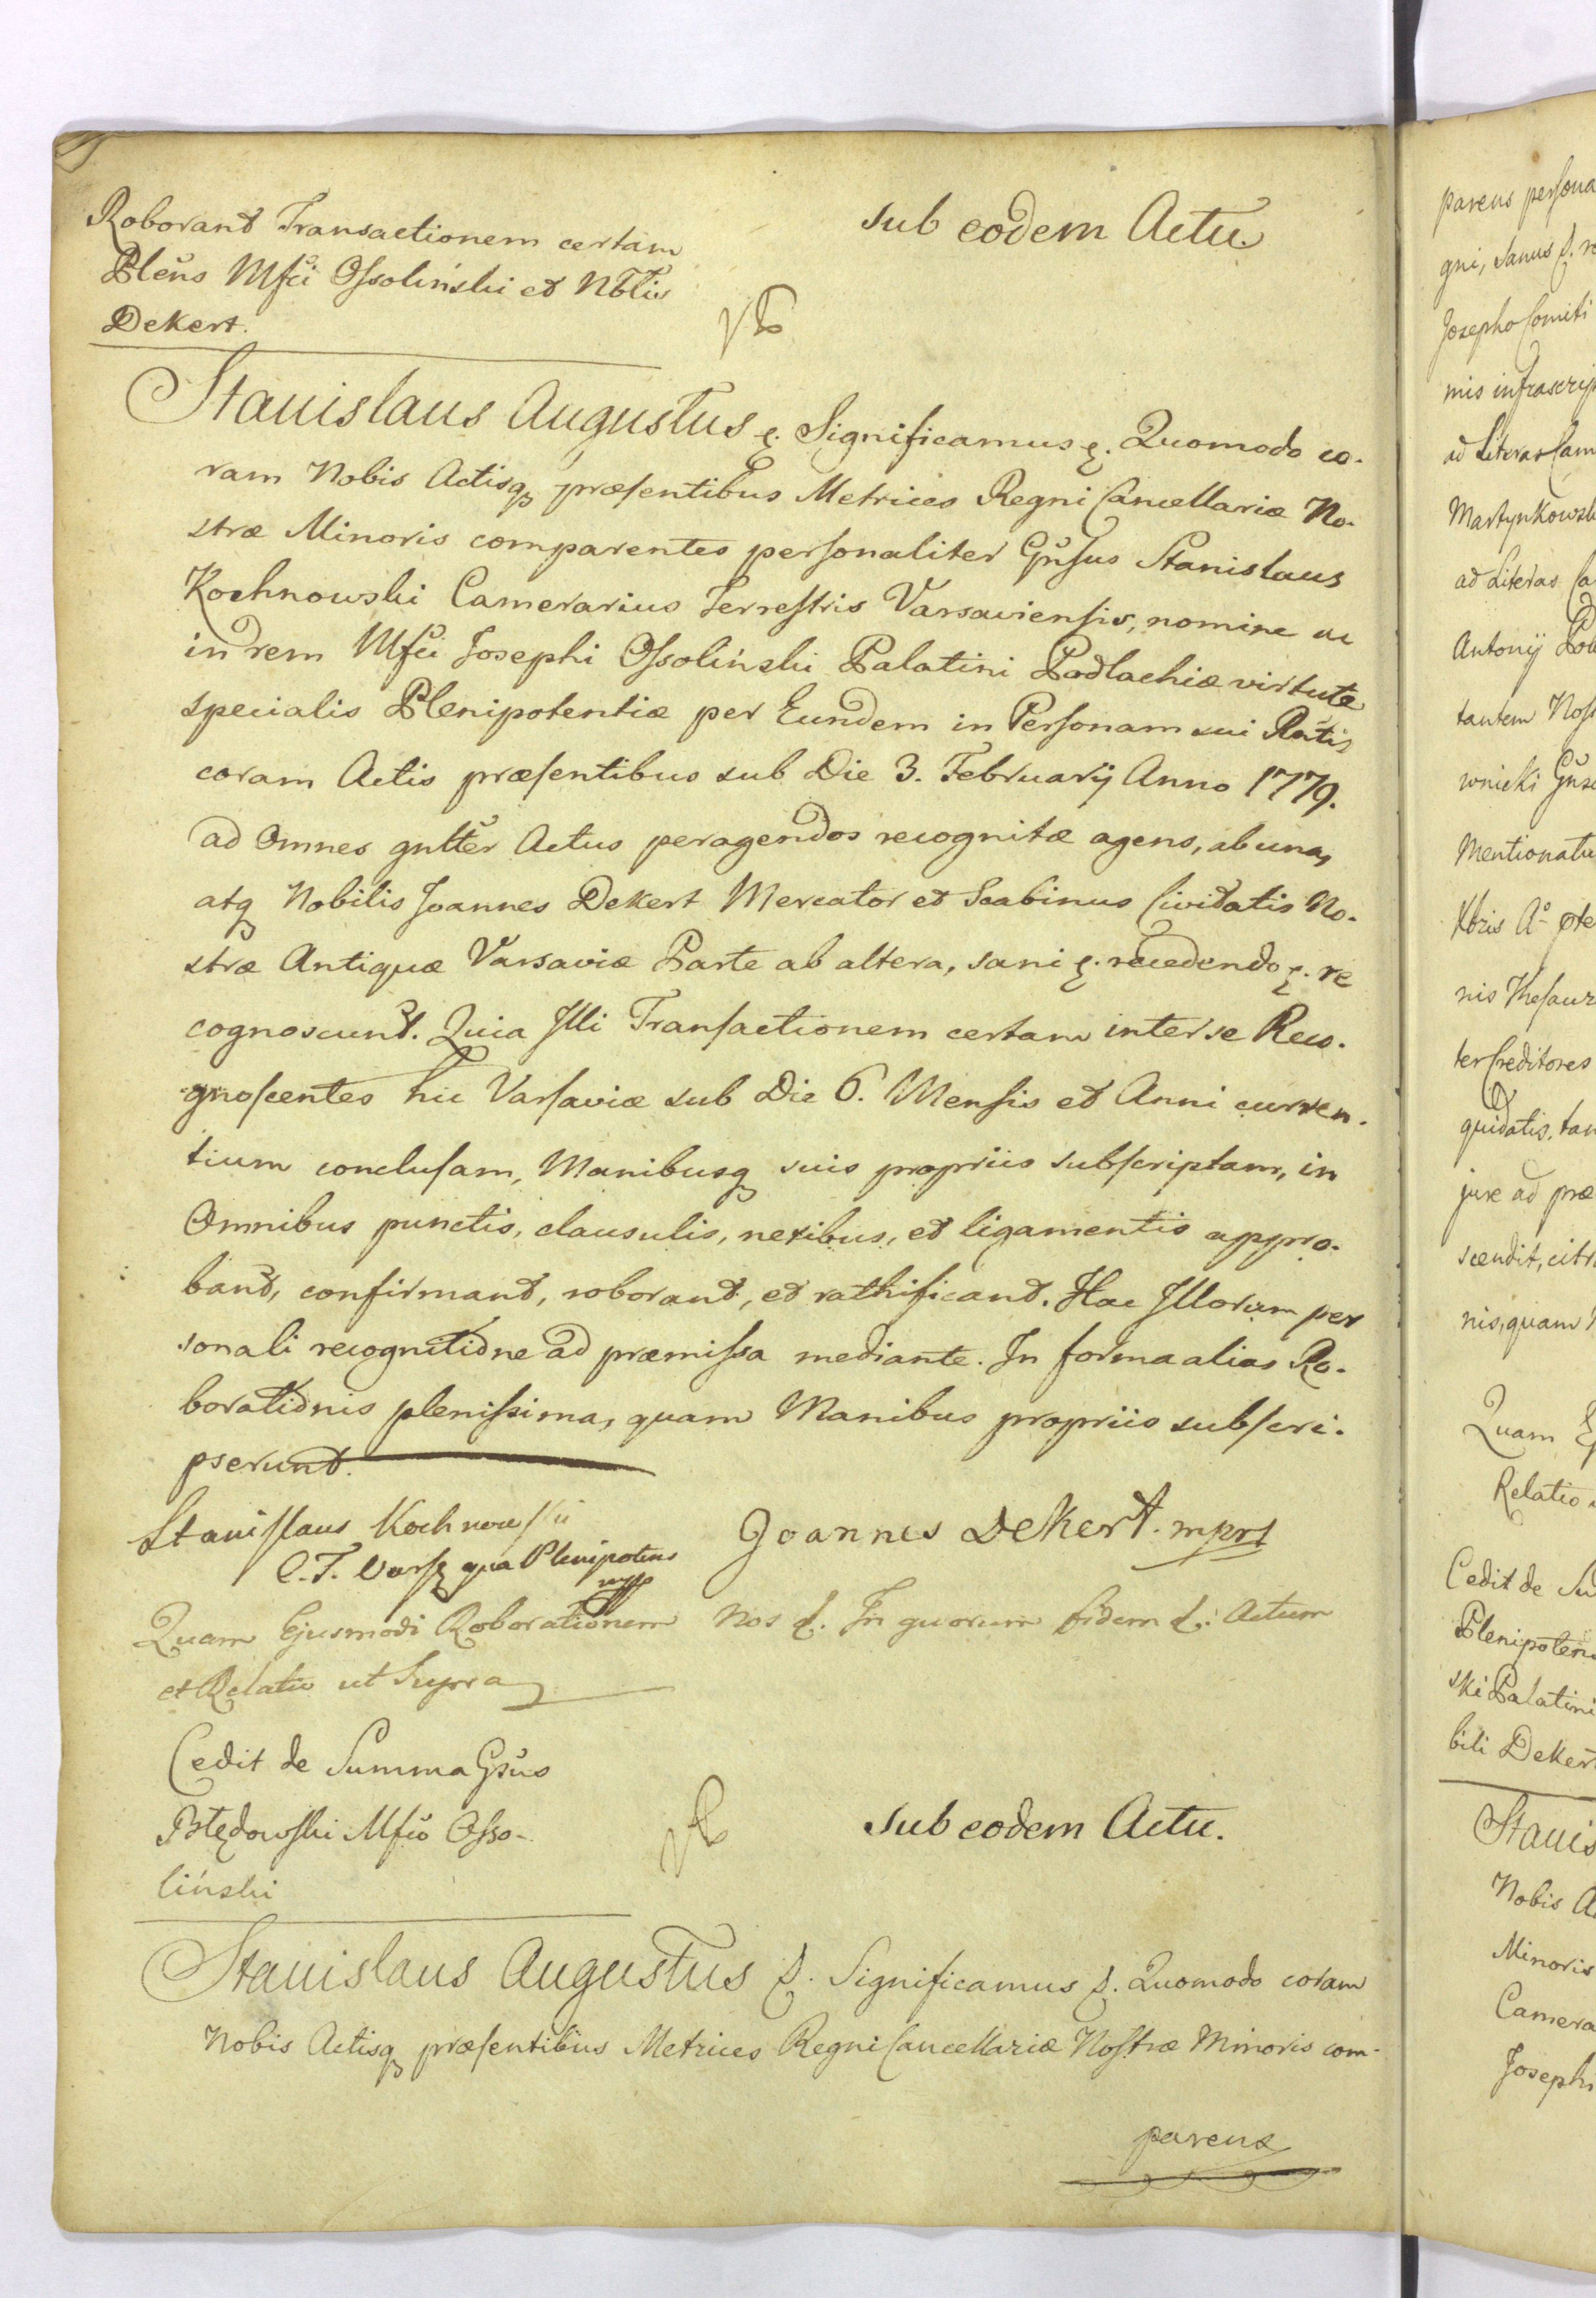 Roborant Transactionem certam
Plens Mfci Ossoliński et Nblis
Dekert.
Sub eodem Actu.
Stanislaus Augustus &. Significamus &. Quomodo co-
ram Nobis Actisq præsentibus Metrices Regni Cancellariæ No-
stræ Minoris comparentes personaliter Gnsus Stanislaus
Kochnowski Camerarius Terrestris Varsaviensis, nomine ac
in rem Mfci Josephi Ossoliński Palatini Podlachiæ virtute
specialis Plenipotentiæ per Eundem in Personam sui Rntis
coram Actis præsentibus sub Die 3. Februarij Anno 1779.
ad Omnes gnltēr Actus peragendos recognitæ agens, ab una,
atq Nobilis Joannes Dekert Mercator et Scabinus Civitatis No-
stræ Antiquæ Varsaviæ Parte ab altera, sani &. recedendo &. re
cognoscunt. Quia Illi Transactionem certam inter se Reco-
gnoscentes hic Varsaviæ sub Die 6. Mensis et Anni curren-
tium conclusam, Manibusq suis propriis subscriptam, in
Omnibus punctis, clausulis, nexibus, et ligamentis appro-
bant, confirmant, roborant, et rathificant. Hac Illorum per
sonali recognitione ad præmissa mediante. In forma alias Ro-
borationis plenissima, quam Manibus propriis subscri-
pserunt.
Stanislaus Kochnowski
C. T. Vars qua Plenipotens
mpp
Joannes Dekert. mpr
Quam Ejusmodi Roborationem Nos &. In quorum fidem &. Actum
et Relatio ut Supra
Cedit de Summa Gsus
Błędowski Mfco Osso-
liński
Sub eodem Actu.
Stanislaus Augustus &. Significamus &. Quomodo coram
Nobis Actisq præsentibus Metrices Regni Cancellariæ Nostræ Minoris com-
parens
parens persona
gni, sanus &. re
Josepho Comiti
mis infrascrip
ad Literas Cam
Martynkowsk
ad Literas Ca
Antonij
tantem Nos
wnicki Gns
Mentionatu
Xbris Aº
nis Thesaur
ter Creditores
quidatis, tan
jure ad præ
scendit, citr
nis, quam
Quam
Relatio
Cedit de Su
Plenipoten
ski Palatini
bili Dekert
Stanis
Nobis A
Minoris
Camera
Josephi